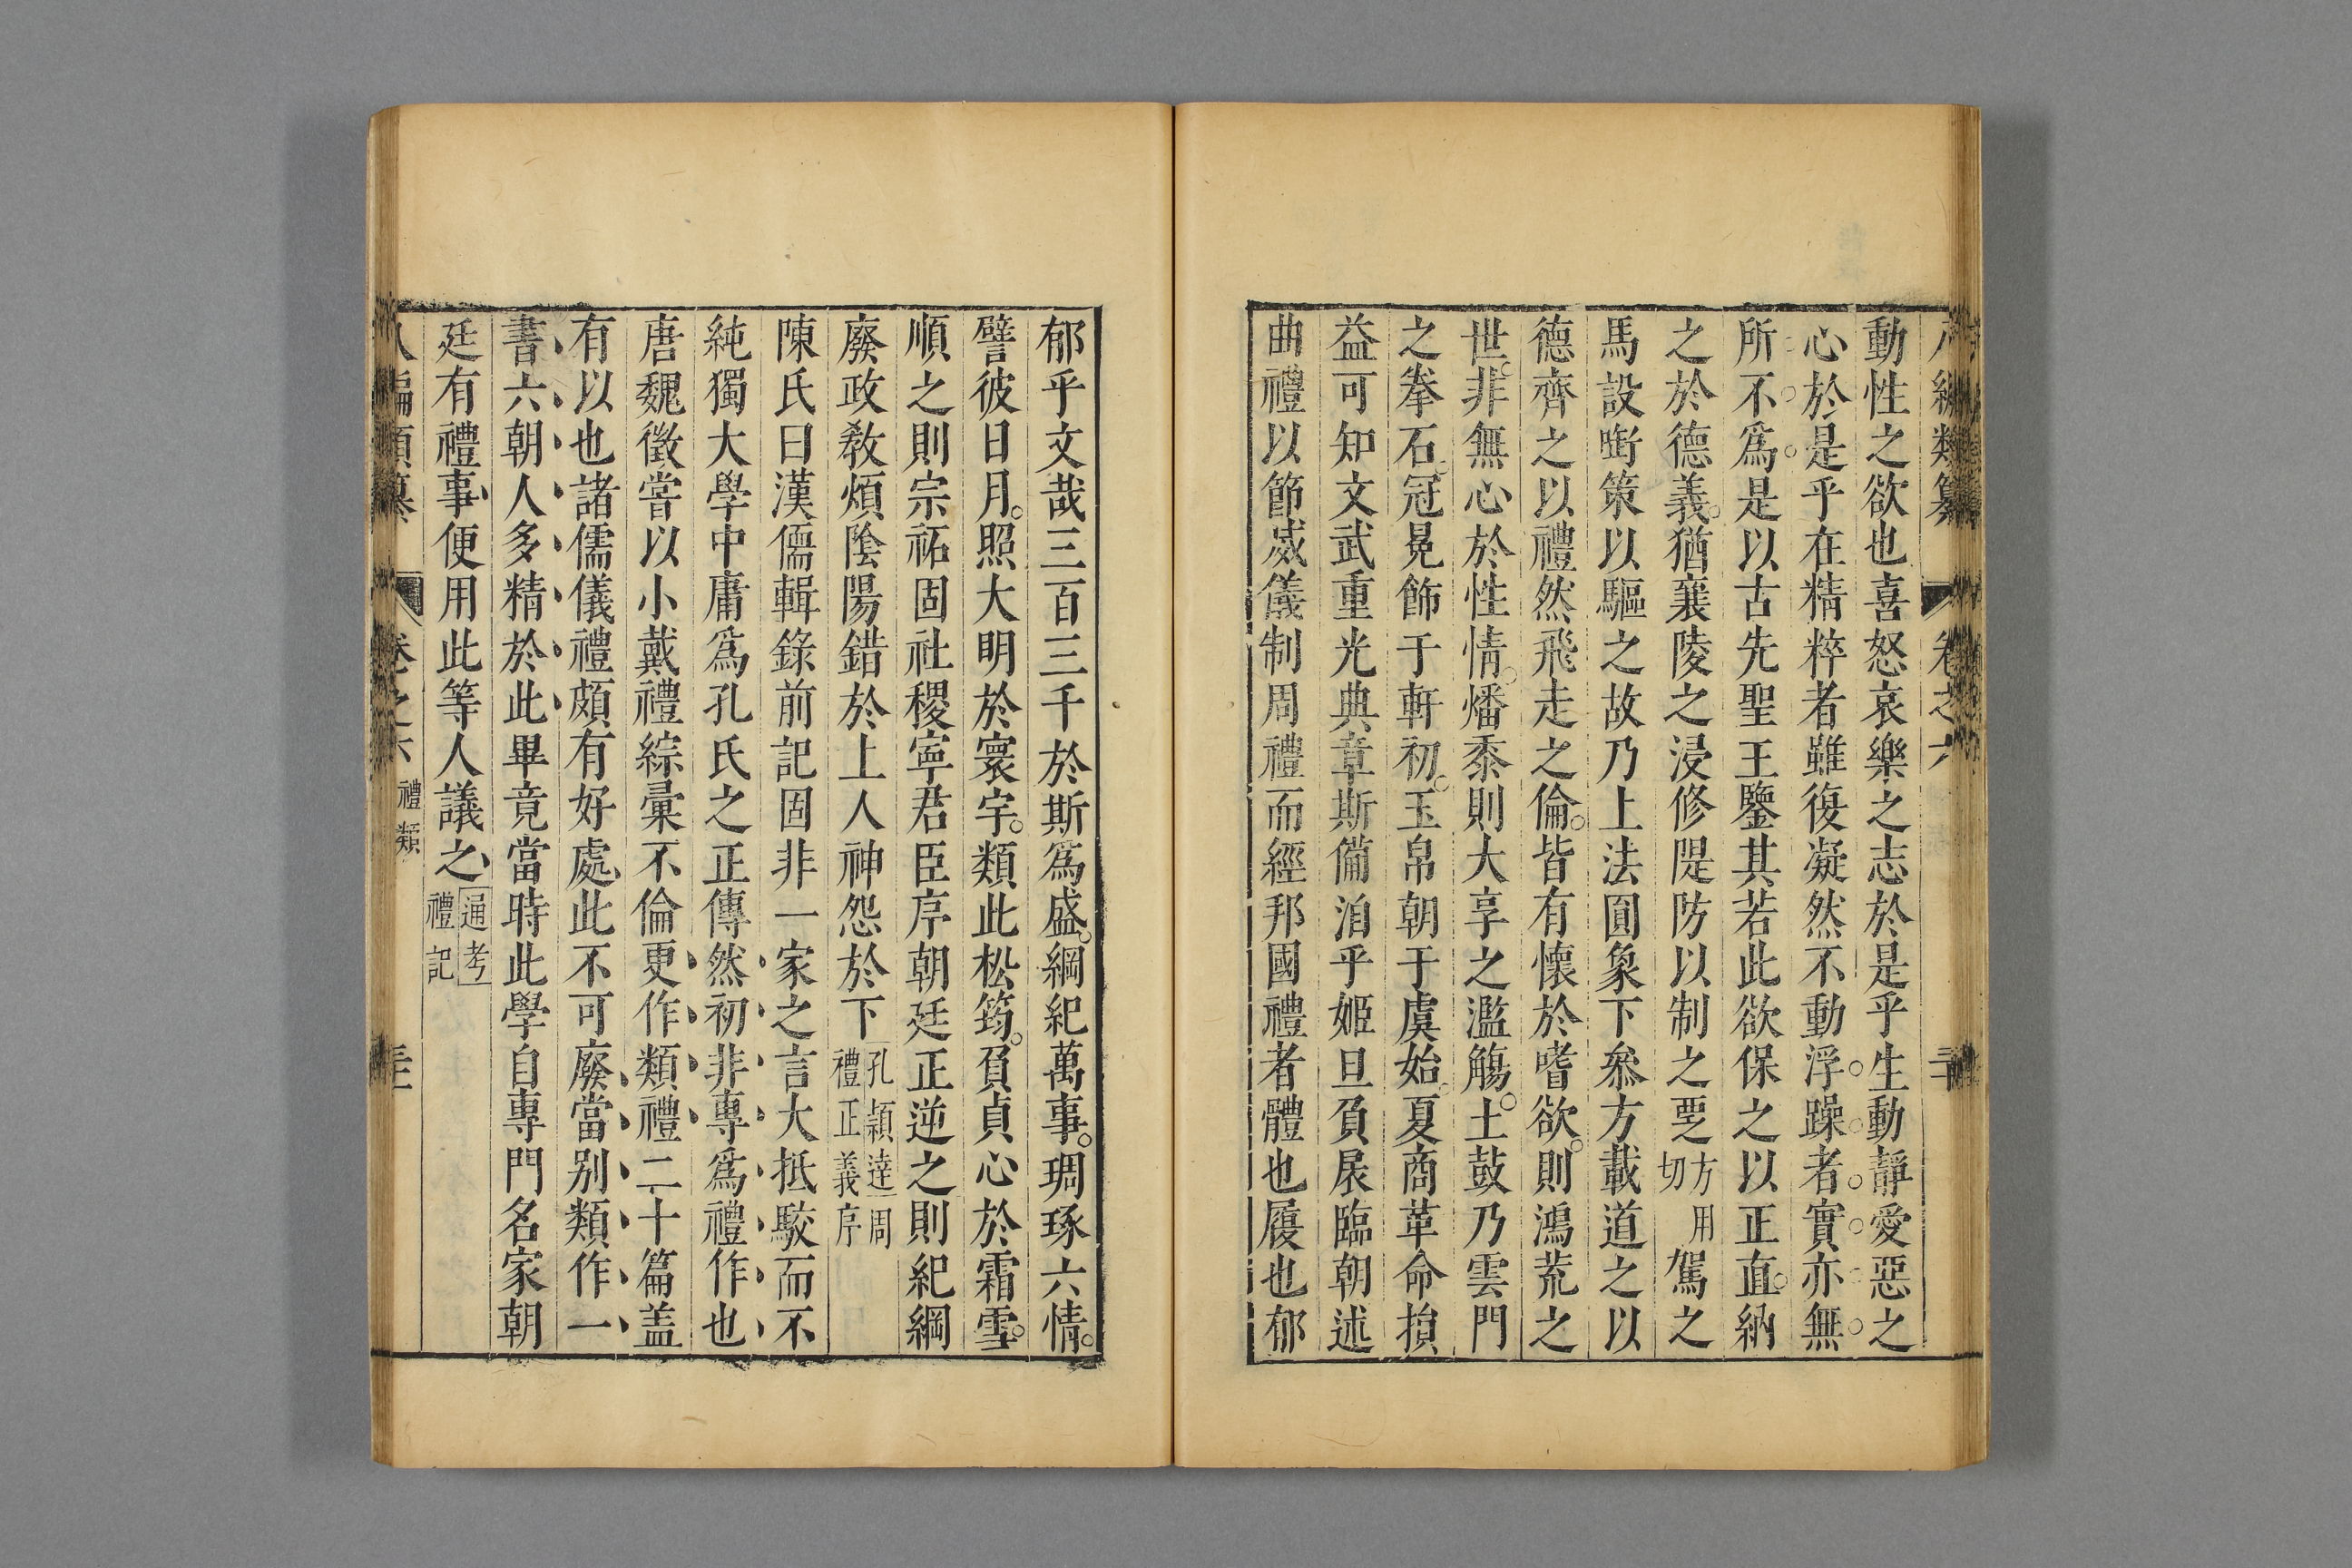 編類纂 卷之六
動性之欲也喜怒哀樂之志於是乎生動靜愛惡之
心於是乎在精粹者雖復凝然不動浮躁者實亦無
所不爲是以古先聖王鑒其若此欲保之以正直納
之於德義猶襄陵之浸修隄防以制之覂方用切駕之
馬設銜策以驅之故乃上法圓象下叅方載道之以
德齊之以禮然飛走之倫皆有懷於嗜欲則鴻荒之
世非無心於性情燔黍則大享之濫觴土鼓乃雲門
之拳石冠冕飾于軒初玉帛朝于虞始夏商革命損
益可知文武重光典章斯備洎乎姬旦負扆臨朝述
曲禮以節威儀制周禮而經邦國禮者體也履也郁
郁乎文哉三百三千於斯爲盛綱紀萬事琱琢六情
譬彼日月照大明於寰宇類此松筠負貞心於霜雪
順之則宗祏固社稷寧君臣序朝廷正逆之則紀綱
廢政教煩陰陽錯於上人神怨於下孔穎達周禮正義序
陳氏曰漢儒輯錄前記固非一家之言大抵駮而不
純獨大學中庸爲孔氏之正傳然初非專爲禮作也
唐魏徵嘗以小戴禮綜彙不倫更作類禮二十篇盖
有以也諸儒儀禮頗有好處此不可廢當别類作一
書六朝人多精於此畢竟當時此學自專門名家朝
廷有禮事便用此等人議之通考禮記
八編類纂 卷之六 禮類